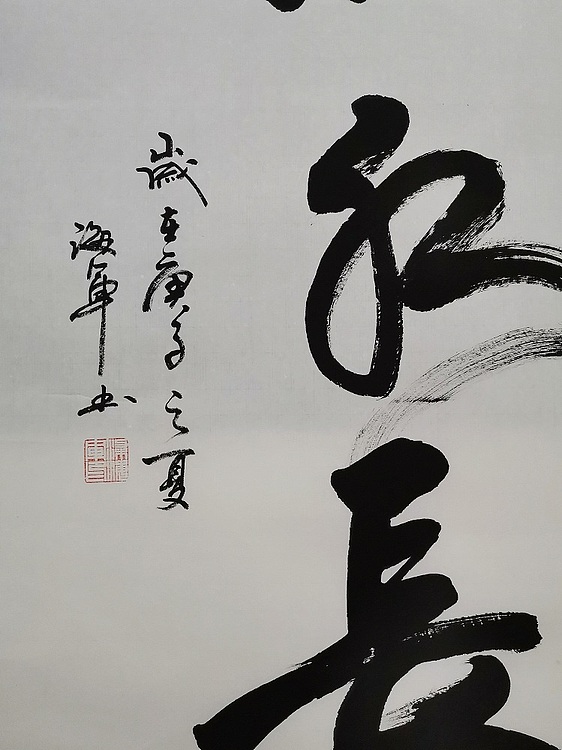 長
歲在庚子之夏
海軍书